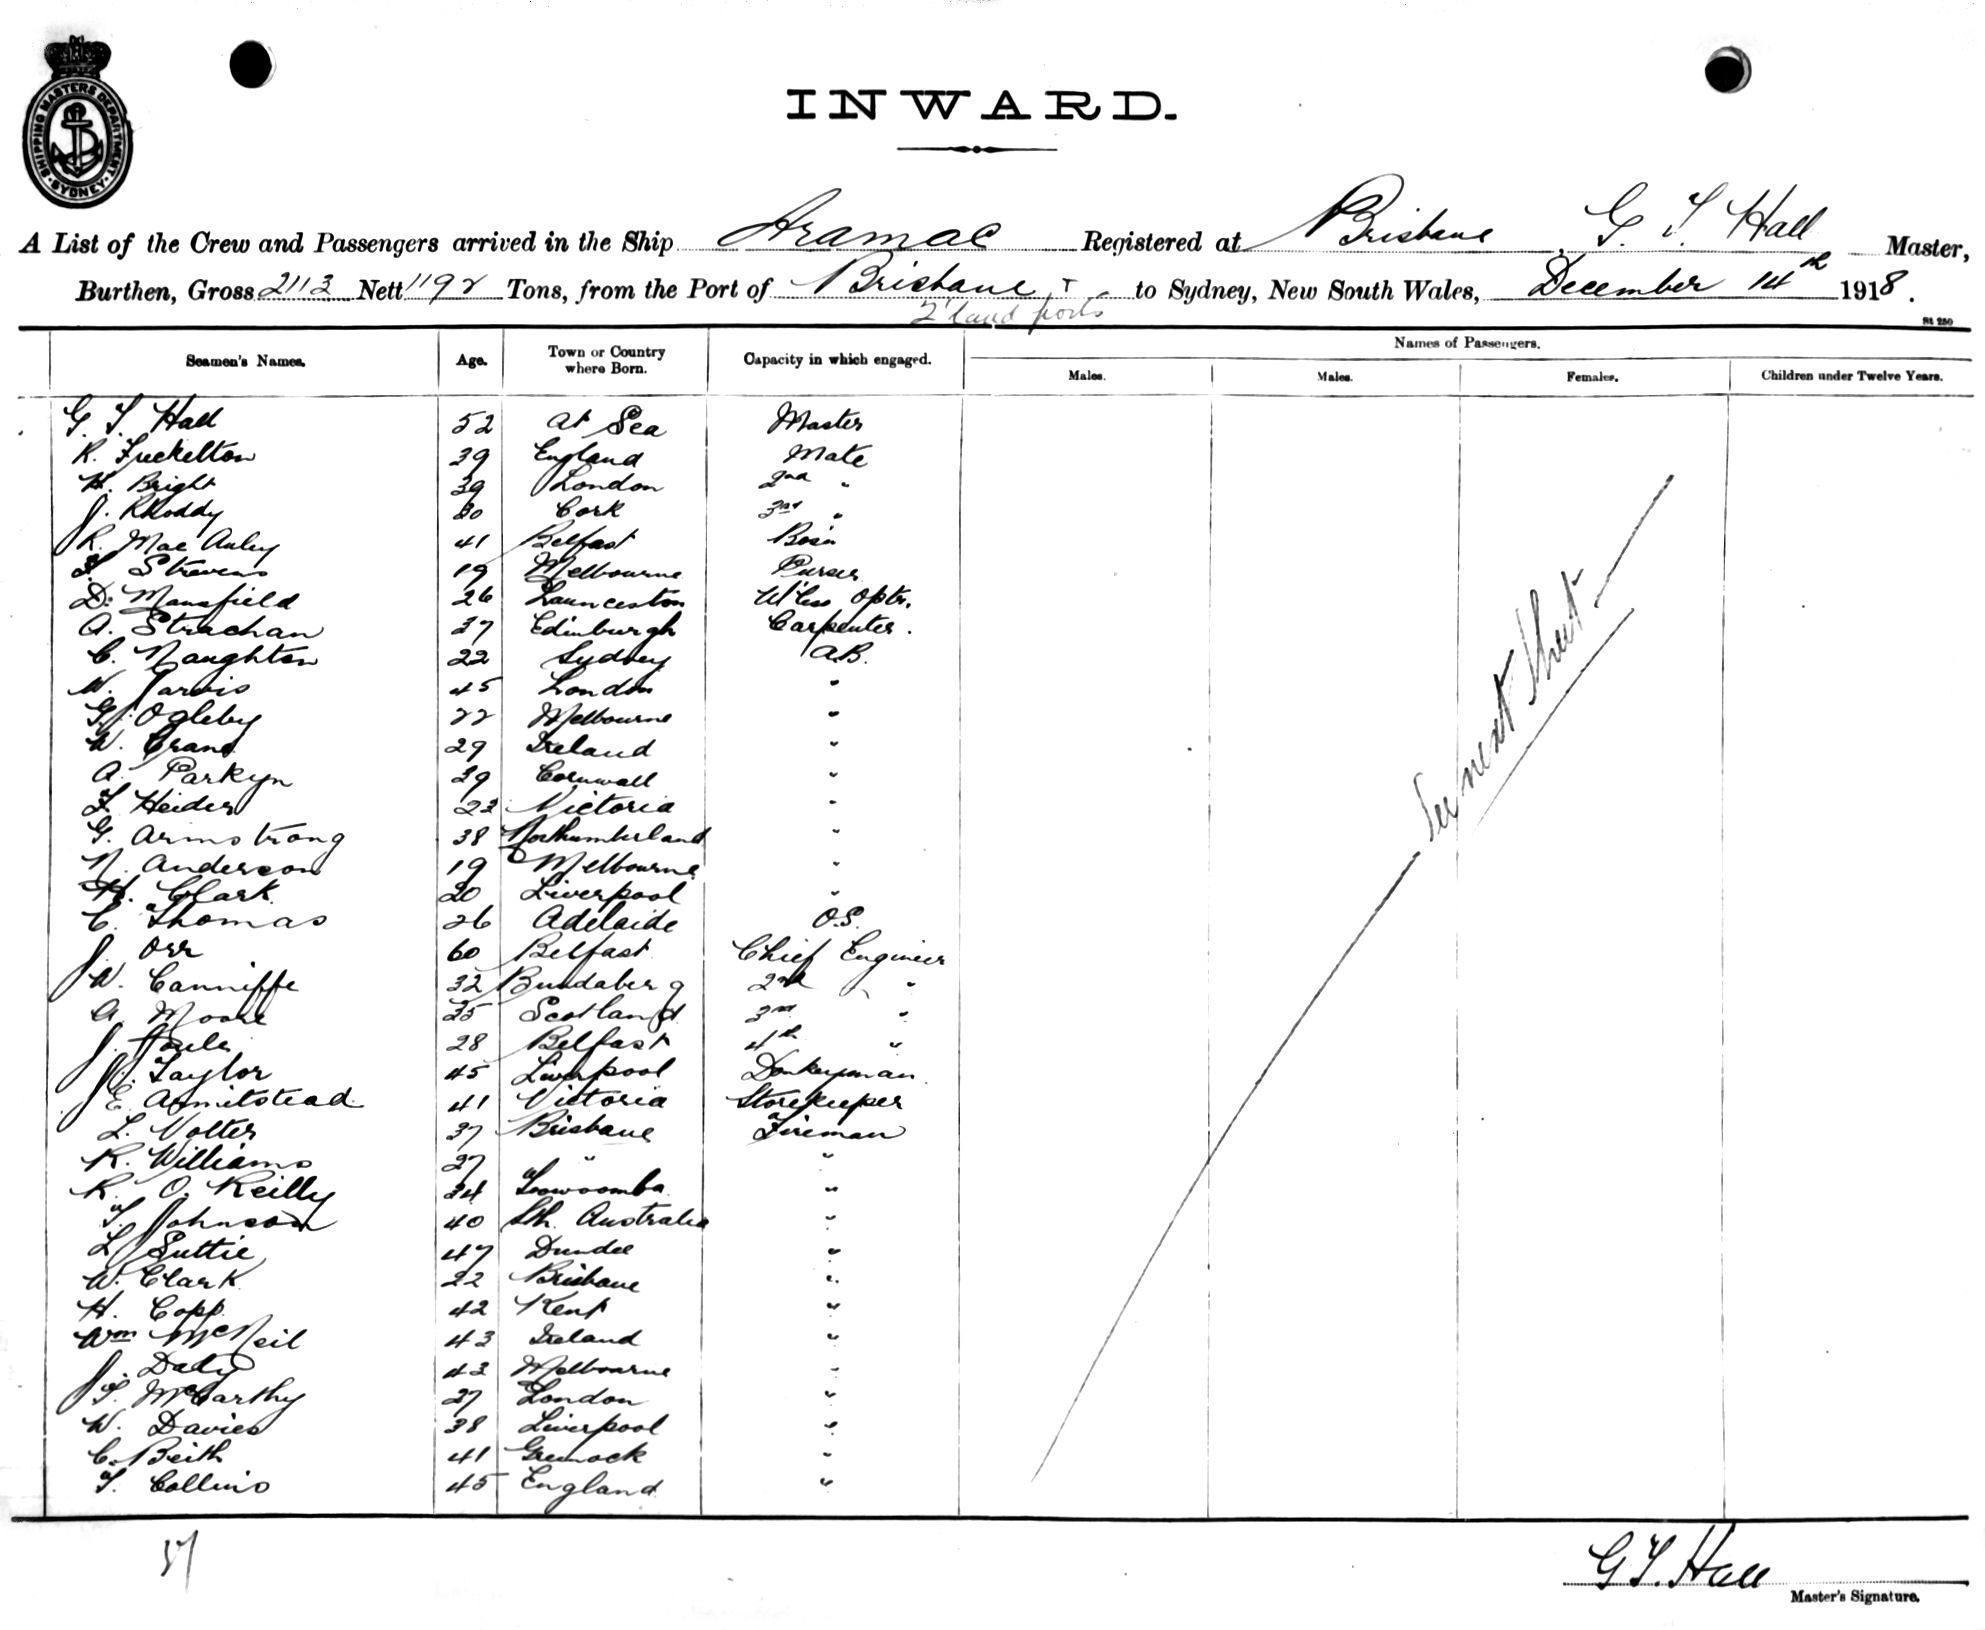 SHIPPING MASTERS DEPARTMENT. SYDNEY
INWARD.
A List of the Crew and Passengers arrived in the Ship Aramac Registered at Brisbane, G. T. Hall Master,
Burthen, Gross 2113 Nett 1192 Tons, from the Port of Brisbane + to Sydney, New South Wales, December 14th 1918.
Q'land ports
Seamen's Names. Age. Town or Country where Born. Capacity in which engaged. Names of Passengers.
Males. Males. Females. Children under Twelve Years.
G. T. Hall 52 At Sea Master
R. 39 England Mate
H. Bright 39 London 2nd "
J. Rhoddy 30 Cork 3rd "
R. Mac Auley 41 Belfast Bosn
Stevens 19 Melbourne Purser
D. Mansfield 26 Launceston W'less Optr.
A. Strachan 37 Edinburgh Carpenter.
C. Naughton 22 Sydney A.B.
W. Jarvis 45 London "
G. Ogleby 22 Melbourne "
W. Crane 29 Ireland "
A. Parkyn 39 Cornwall "
F. Heider 23 Victoria "
G. Armstrong 38 Northumberland "
N. Anderson 19 Melbourne "
H. Clark 20 Liverpool "
C. Thomas 26 Adelaide O.S.
J. Orr 60 Belfast Chief Engineer
W. Canniffe 32 Bundaberg 2nd "
A. Moore 35 Scotland 3rd "
J. 28 Belfast 4th "
J. Taylor 45 Liverpool Donkeyman
E. Armitstead 41 Victoria Storekeeper
L. Notter 37 Brisbane Fireman
R. Williams 27 " "
R. O. Reilly 34 Toowoomba "
T. Johnson 40 Sth. Australia "
L. Suttie 47 Dundee "
W. Clark 22 Brisbane "
H. Copp. 42 Kent "
Wm McNeil 43 Ireland "
J. Daly 43 Melbourne "
T. McCarthy 27 London "
W. Davies 38 Liverpool "
C. Beith 41 Greenock "
T. Collins 45 England "
See next Sheet
G T. Hall
Master's Signature.